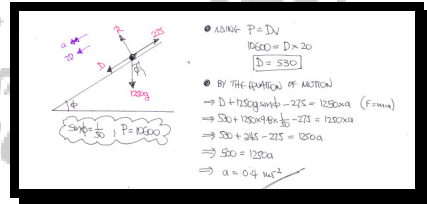 a
20
R
275
D
φ
1250g
φ
sinφ = 1/50, P=10600
● USING P = DV
10600 = D × 20
D = 530
● BY THE EQUATION OF MOTION
⇒ D + 1250g sinφ - 275 = 1250×a (F=ma)
⇒ 530 + 1250×9.8×1/50 - 275 = 1250×a
⇒ 530 + 245 - 275 = 1250a
⇒ 500 = 1250a
⇒ a = 0.4 ms⁻²